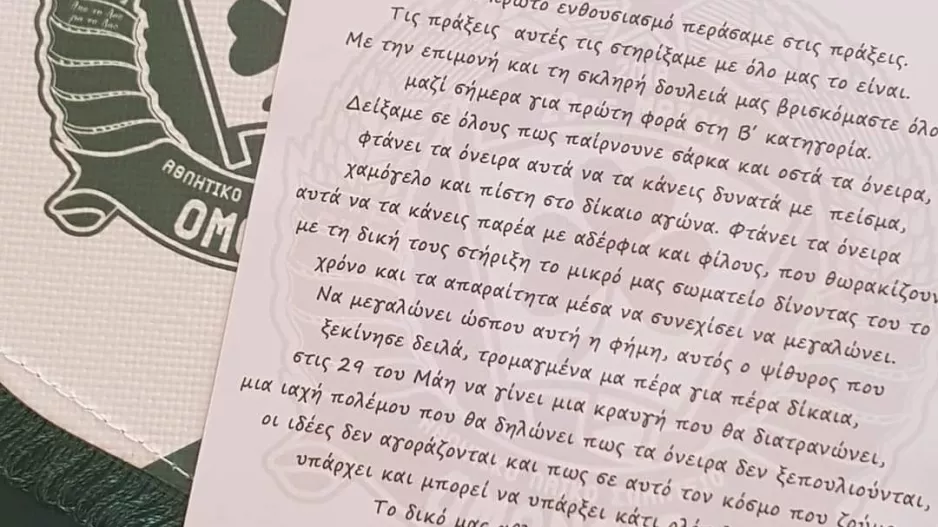 Απο το Λαο
για το Λαο
ΑΘΛΗΤΙΚΟ
ΟΜΟ
πρώτο ενθουσιασμό περάσαμε στις πράξεις.
Τις πράξεις αυτές τις στηρίξαμε με όλο μας το είναι.
Με την επιμονή και τη σκληρή δουλειά μας βρισκόμαστε όλο
μαζί σήμερα για πρώτη φορά στη Β' κατηγορία.
Δείξαμε σε όλους πως παίρνουνε σάρκα και οστά τα όνειρα,
φτάνει τα όνειρα αυτά να τα κάνεις δυνατά με πείσμα,
χαμόγελο και πίστη στο δίκαιο αγώνα. Φτάνει τα όνειρα
αυτά να τα κάνεις παρέα με αδέρφια και φίλους, που θωρακίζουν
με τη δική τους στήριξη το μικρό μας σωματείο δίνοντας του το
χρόνο και τα απαραίτητα μέσα να συνεχίσει να μεγαλώνει.
Να μεγαλώνει ώσπου αυτή η φήμη, αυτός ο ψίθυρος που
ξεκίνησε δειλά, τρομαγμένα μα πέρα για πέρα δίκαια,
στις 29 του Μάη να γίνει μια κραυγή που θα διατρανώνει,
μια ιαχή πολέμου που θα δηλώνει πως τα όνειρα δεν ξεπουλιούνται,
οι ιδέες δεν αγοράζονται και πως σε αυτό τον κόσμο που ζούμε
υπάρχει και μπορεί να υπάρξει κάτι
Το δικό μας